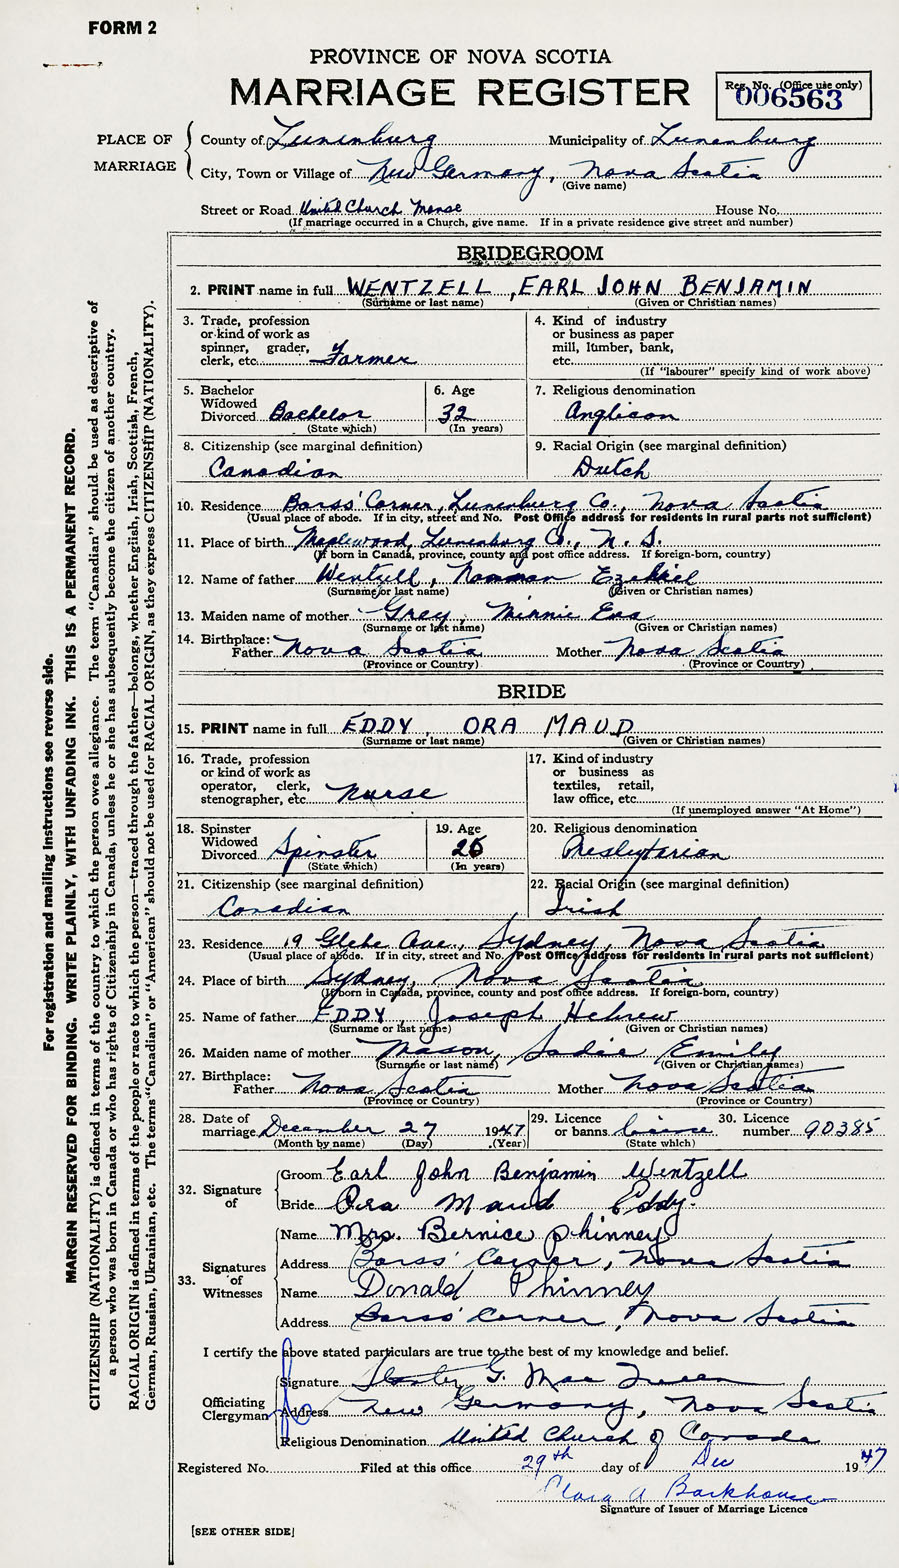 FORM 2
PROVINCE OF NOVA SCOTIA
MARRIAGE REGISTER
Reg. No. (Office use only)
006563
PLACE OF MARRIAGE
County of Lunenburg Municipality of Lunenburg
City, Town or Village of New Germany, Nova Scotia
(Give name)
Street or Road United Church Manse House No.
(If marriage occurred in a Church, give name. If in a private residence give street and number)
BRIDEGROOM
2. PRINT name in full WENTZELL, EARL JOHN BENJAMIN
(Surname or last name) (Given or Christian names)
3. Trade, profession or kind of work as spinner, grader, clerk, etc. Farmer
4. Kind of industry or business as paper mill, lumber, bank, etc.
(If "labourer" specify kind of work above)
5. Bachelor Widowed Divorced Bachelor
(State which)
6. Age 32
(In years)
7. Religious denomination Anglican
8. Citizenship (see marginal definition)
Canadian
9. Racial Origin (see marginal definition)
Dutch
10. Residence Barss' Corner, Lunenburg Co., Nova Scotia
(Usual place of abode. If in city, street and No. Post Office address for residents in rural parts not sufficient)
11. Place of birth Maplewood, Lunenburg Co., N. S.
(If born in Canada, province, county and post office address. If foreign-born, country)
12. Name of father Wentzell, Norman Ezekiel
(Surname or last name) (Given or Christian names)
13. Maiden name of mother Grey, Minnie Eva
(Surname or last name) (Given or Christian names)
14. Birthplace:
Father Nova Scotia Mother Nova Scotia
(Province or Country) (Province or Country)
BRIDE
15. PRINT name in full EDDY, ORA MAUD
(Surname or last name) (Given or Christian names)
16. Trade, profession or kind of work as operator, clerk, stenographer, etc. Nurse
17. Kind of industry or business as textiles, retail, law office, etc.
(If unemployed answer "At Home")
18. Spinster Widowed Divorced Spinster
(State which)
19. Age 26
(In years)
20. Religious denomination
Presbyterian
21. Citizenship (see marginal definition)
Canadian
22. Racial Origin (see marginal definition)
Irish
23. Residence 19 Glebe Ave., Sydney, Nova Scotia
(Usual place of abode. If in city, street and No. Post Office address for residents in rural parts not sufficient)
24. Place of birth Sydney, Nova Scotia
(If born in Canada, province, county and post office address. If foreign-born, country)
25. Name of father EDDY, Joseph Hebrew
(Surname or last name) (Given or Christian names)
26. Maiden name of mother Mason, Sadie Emily
(Surname or last name) (Given or Christian names)
27. Birthplace:
Father Nova Scotia Mother Nova Scotia
(Province or Country) (Province or Country)
28. Date of marriage December 27 1947
(Month by name) (Day) (Year)
29. Licence or banns licence
(State which)
30. Licence number 90385
32. Signature of
Groom Earl John Benjamin Wentzell
Bride Ora Maud Eddy.
33. Signatures of Witnesses
Name Mrs. Bernice Phinney
Address Barss' Corner, Nova Scotia
Name Donald Phinney
Address Barss' Corner, Nova Scotia
I certify the above stated particulars are true to the best of my knowledge and belief.
Officiating Clergyman
Signature G. Mac Queen
Address New Germany, Nova Scotia
Religious Denomination United Church of Canada
Registered No. Filed at this office 29th day of Dec 1947
Clara A Barkhouse
Signature of Issuer of Marriage Licence
[SEE OTHER SIDE]
For registration and mailing instructions see reverse side.
MARGIN RESERVED FOR BINDING. WRITE PLAINLY, WITH UNFADING INK. THIS IS A PERMANENT RECORD.
CITIZENSHIP (NATIONALITY) is defined in terms of the country to which the person owes allegiance. The term "Canadian" should be used as descriptive of
a person who was born in Canada or who has rights of Citizenship in Canada, unless he or she has subsequently become the citizen of another country.
RACIAL ORIGIN is defined in terms of the people or race to which the person—traced through the father—belongs, whether English, Irish, Scottish, French,
German, Russian, Ukrainian, etc. The terms "Canadian" or "American" should not be used for RACIAL ORIGIN, as they express CITIZENSHIP (NATIONALITY).